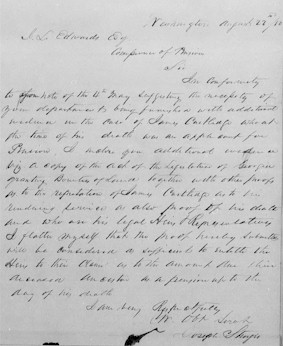 Washington August 22nd
J. L. Edwards Esq
Commissioner of Pension
Sir
In conformity
to your note of the 12th May suggesting the necessity of
your department being furnished with additional
evidence in the case of James Carthage who at
the time of his death was an applicant for
Pension I under you additional evidence
viz a copy of the act of the legislature of Georgia
granting Bounties of Land together with other proofs
as to the reputation of James Carthage as to his
rendering service as also proof of his death
and who are his legal Heirs & Representatives
I flatter myself that the proof hereby submitted
will be considered as sufficient to entitle the
Heirs to their claim as to the amount due their
deceased ancestor as a pension up to the
day of his death
I am very Respectfully
Yr Obt Servt
Joseph